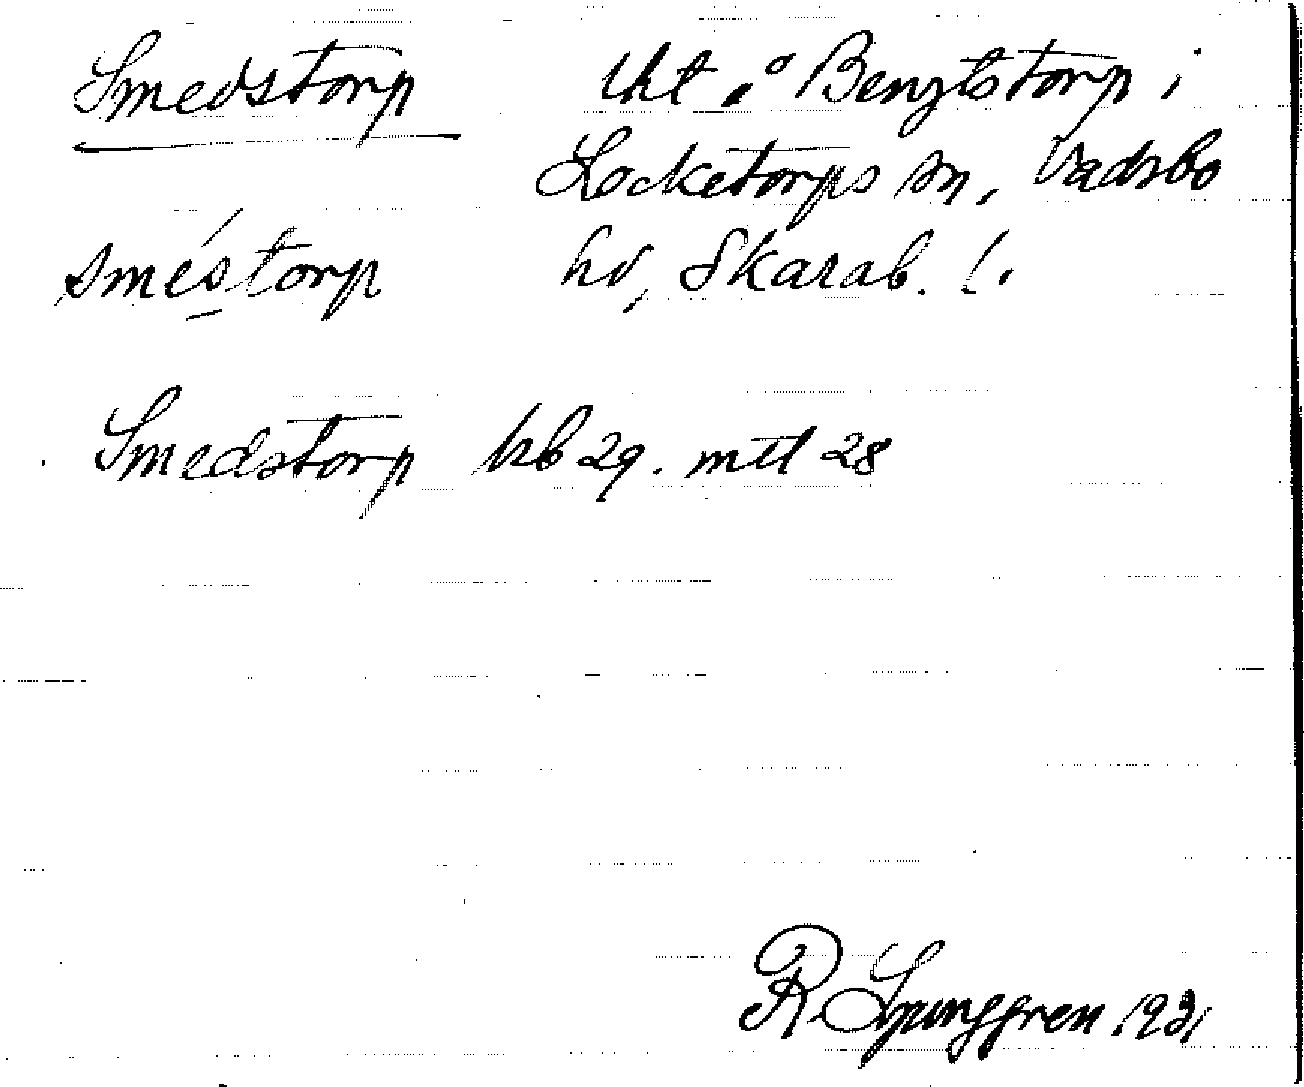 Smedstorp lht. å Bengtstorp i
Locketorps sn, Vadsbo
sméstorp hd, Skarab. l.
Smedstorp kb 29. mtl 28
R. Ljunggren 1931